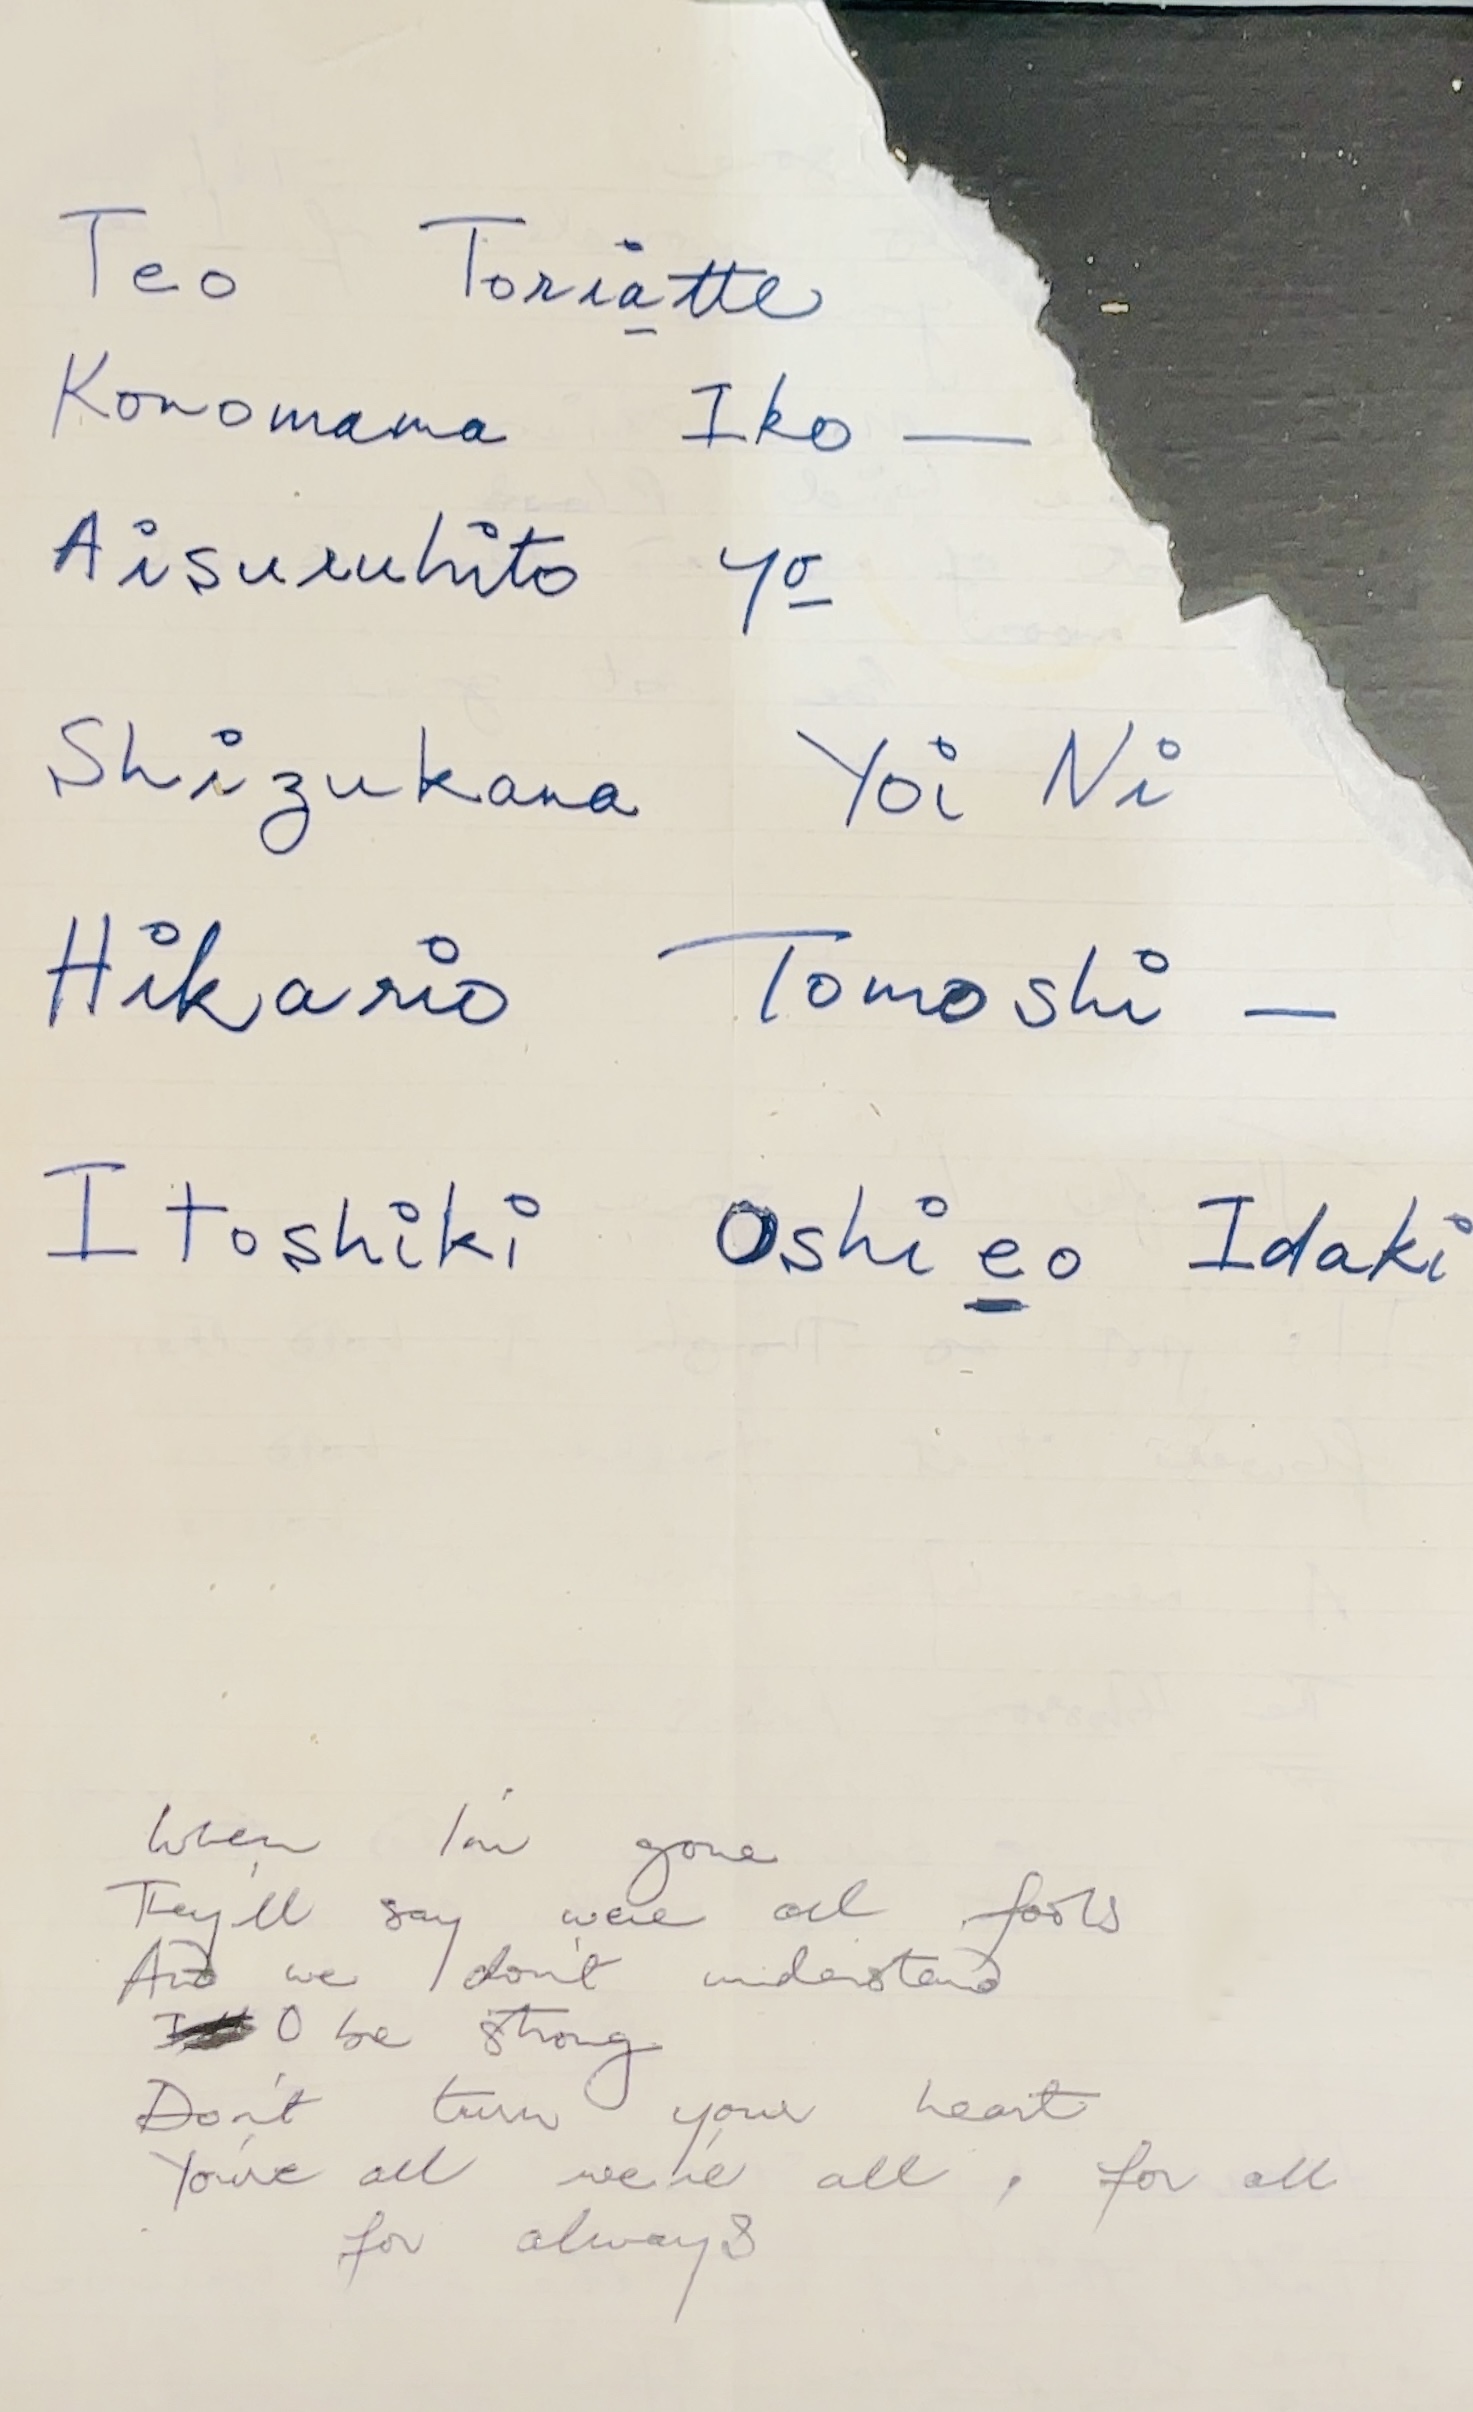 Teo Toriatte
Konomama Iko —
Aisuruhito yo
Shizukana Yoi Ni
Hikario Tomoshi —
Itoshiki Oshieo Idaki
When I'm gone
They'll say we're all fools
And we don't understand
O be strong
Don't turn your heart
You're all we're all, for all
for always